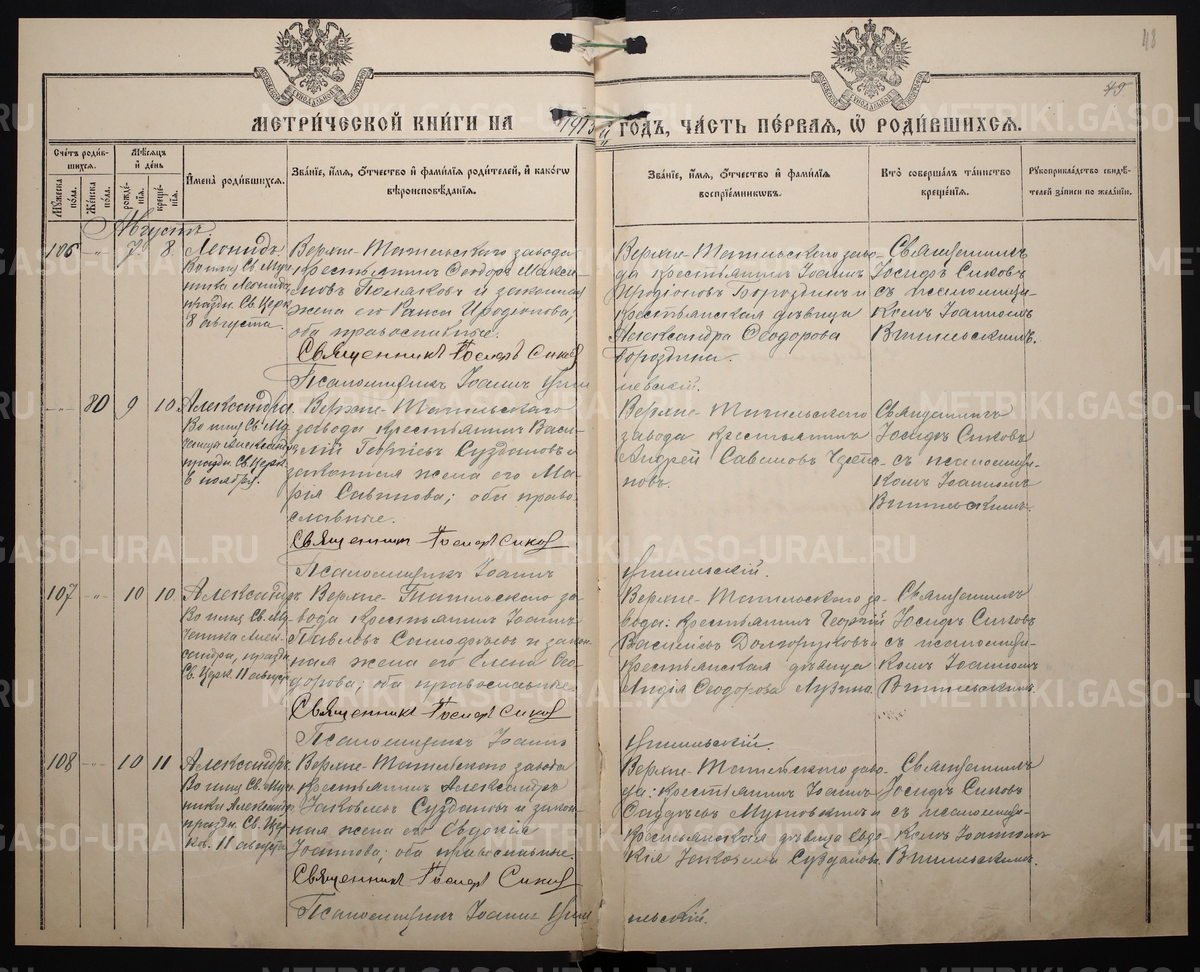 48
49
МЕТРИ́ЧЕСКОЙ КНИ́ГИ НА 1913 ГОДЪ, ЧА́СТЬ ПЕ́РВАЯ, Ѡ РОДИ́ВШИХСЯ.
Счетъ роди́вшихся.
Му́жеска по́ла.
Же́нска по́ла.
Мѣ́сяцъ и де́нь
рожде́нія.
креще́нія.
Имена̀ роди́вшихся.
Зва́ніе, и́мя, о́тчество и фами́лія роди́телей, и како́гѡ вѣроисповѣ́данія.
Зва́ніе, и́мя, о́тчество и фами́лія воспріе́мникѡвъ.
Кто̀ соверша́лъ та́инство креще́нія.
Рукоприкла́дство свидѣ́телей за́писи по жела́нію.
Августъ.
106
"
7
8
Леонидъ
Во имя Св. Му-
ченика Леонида,
праздн. Св. Церк.
8 августа.
Верхне-Тагильскаго завода
крестьянинъ Ѳеодоръ Макси-
мовъ Поляковъ и законная
жена его Раиса Иродіонова,
оба православные.
Священникъ Іосифъ Сиковъ
Псаломщикъ Іоаннъ
Верхне-Тагильскаго заво-
да крестьянинъ Іоаннъ
Иродіоновъ Бороздинъ и
крестьянская дѣвица
Александра Ѳеодорова
Бороздина.
Священникъ
Іосифъ Сиковъ
съ псаломщи-
комъ Іоанномъ
"
80
9
10
Александра
Во имя Св. Му-
праздн. Св. Церк.
6 ноября.
Верхне-Тагильскаго
завода крестьянинъ Васи-
лій Суздаловъ и
законная жена его Ма-
рія Саввинова; оба право-
славные.
Священникъ Іосифъ Сиковъ
Псаломщикъ Іоаннъ
Верхне-Тагильскаго
завода крестьянинъ
Андрей
Священникъ
Іосифъ Сиковъ
съ псаломщи-
комъ Іоанномъ
107
"
10
10
Александръ
Во имя Св. Му-
ченика Алек-
сандра, праздн.
Св. Церк. 11 август.
Верхне-Тагильскаго за-
вода крестьянинъ Іоаннъ
Павловъ и закон-
ная жена его Елена Ѳео-
дорова; оба православные.
Священникъ Іосифъ Сиковъ
Псаломщикъ Іоаннъ
Верхне-Тагильскаго за-
вода: крестьянинъ Георгій
Васильевъ Долгоруковъ и
крестьянская дѣвица
Лидія Ѳеодорова
Священникъ
Іосифъ Сиковъ
съ псаломщи-
комъ Іоанномъ
108
"
10
11
Александръ
Во имя Св. Му-
ченика Александра,
праздн. Св. Цер-
кв. 11 августа.
Верхне-Тагильскаго завода
крестьянинъ Александръ
Іаковлевъ Суздаловъ и закон-
ная жена его Евдокія
Іоаннова; оба православные.
Священникъ Іосифъ Сиковъ
Псаломщикъ Іоаннъ
Верхне-Тагильскаго заво-
да: крестьянинъ Іоаннъ
крестьянская дѣвица Евдо-
кія Іаковлева Суздалова.
Священникъ
Іосифъ Сиковъ
съ псаломщи-
комъ Іоанномъ
METRIKI.GASO-URAL.RU